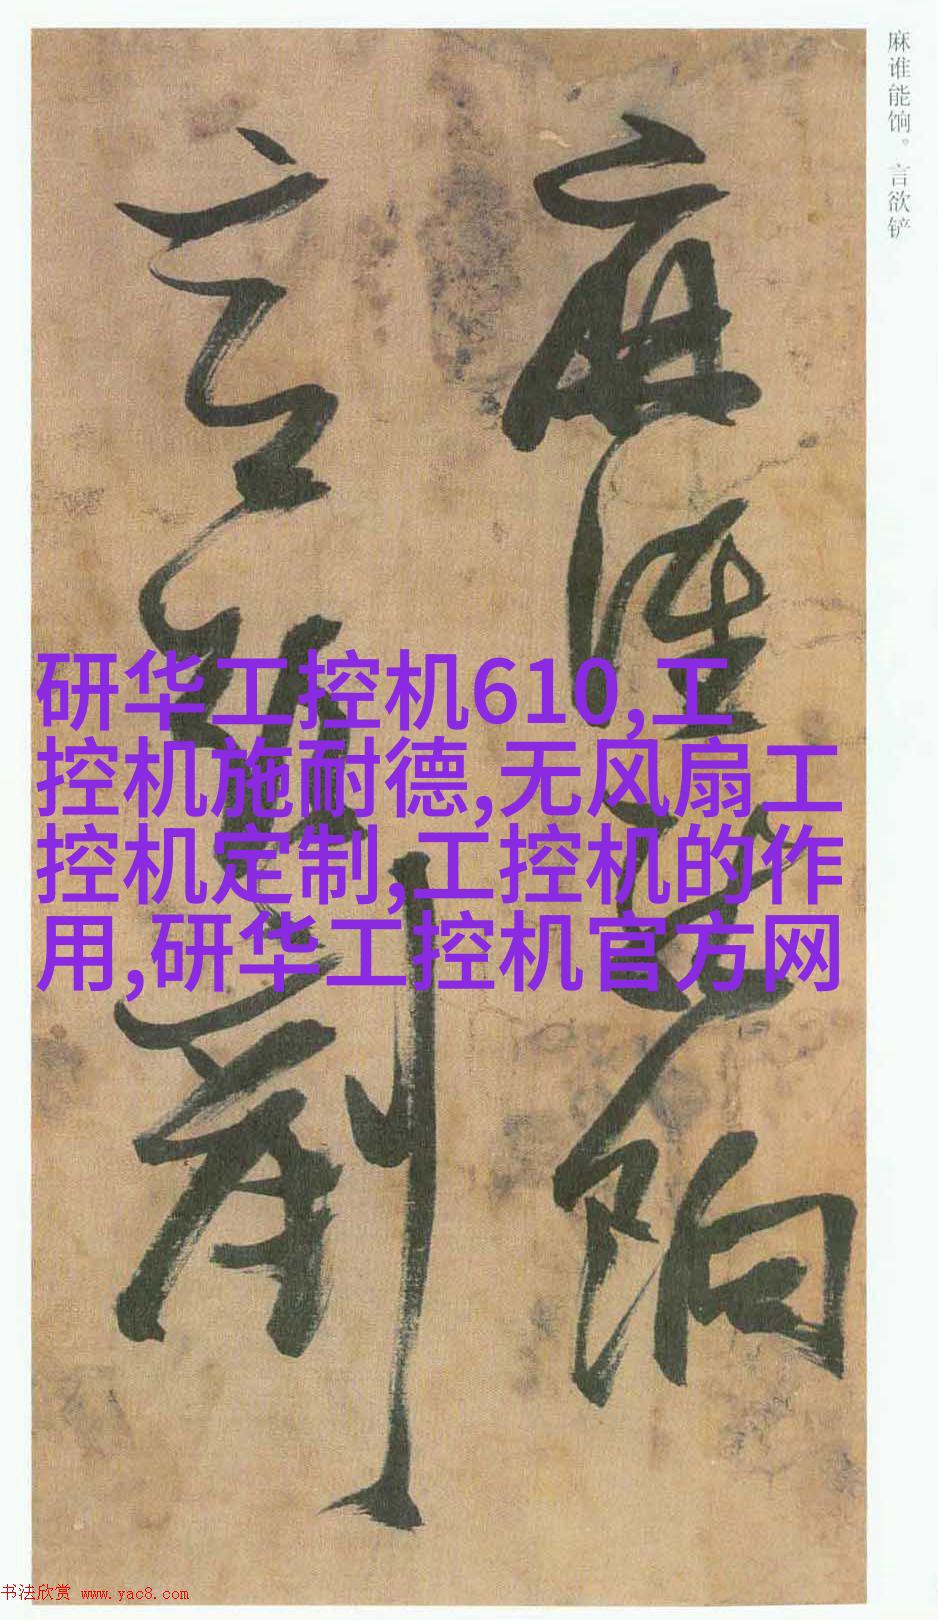 麻谁能饷。言欲铲
麻誰能餉
言欲剷
研华工控机610,工
控机施耐德,无风扇工
控机定制,工控机的作
用,研华工控机官方网
书法欣赏 www.yac8.com